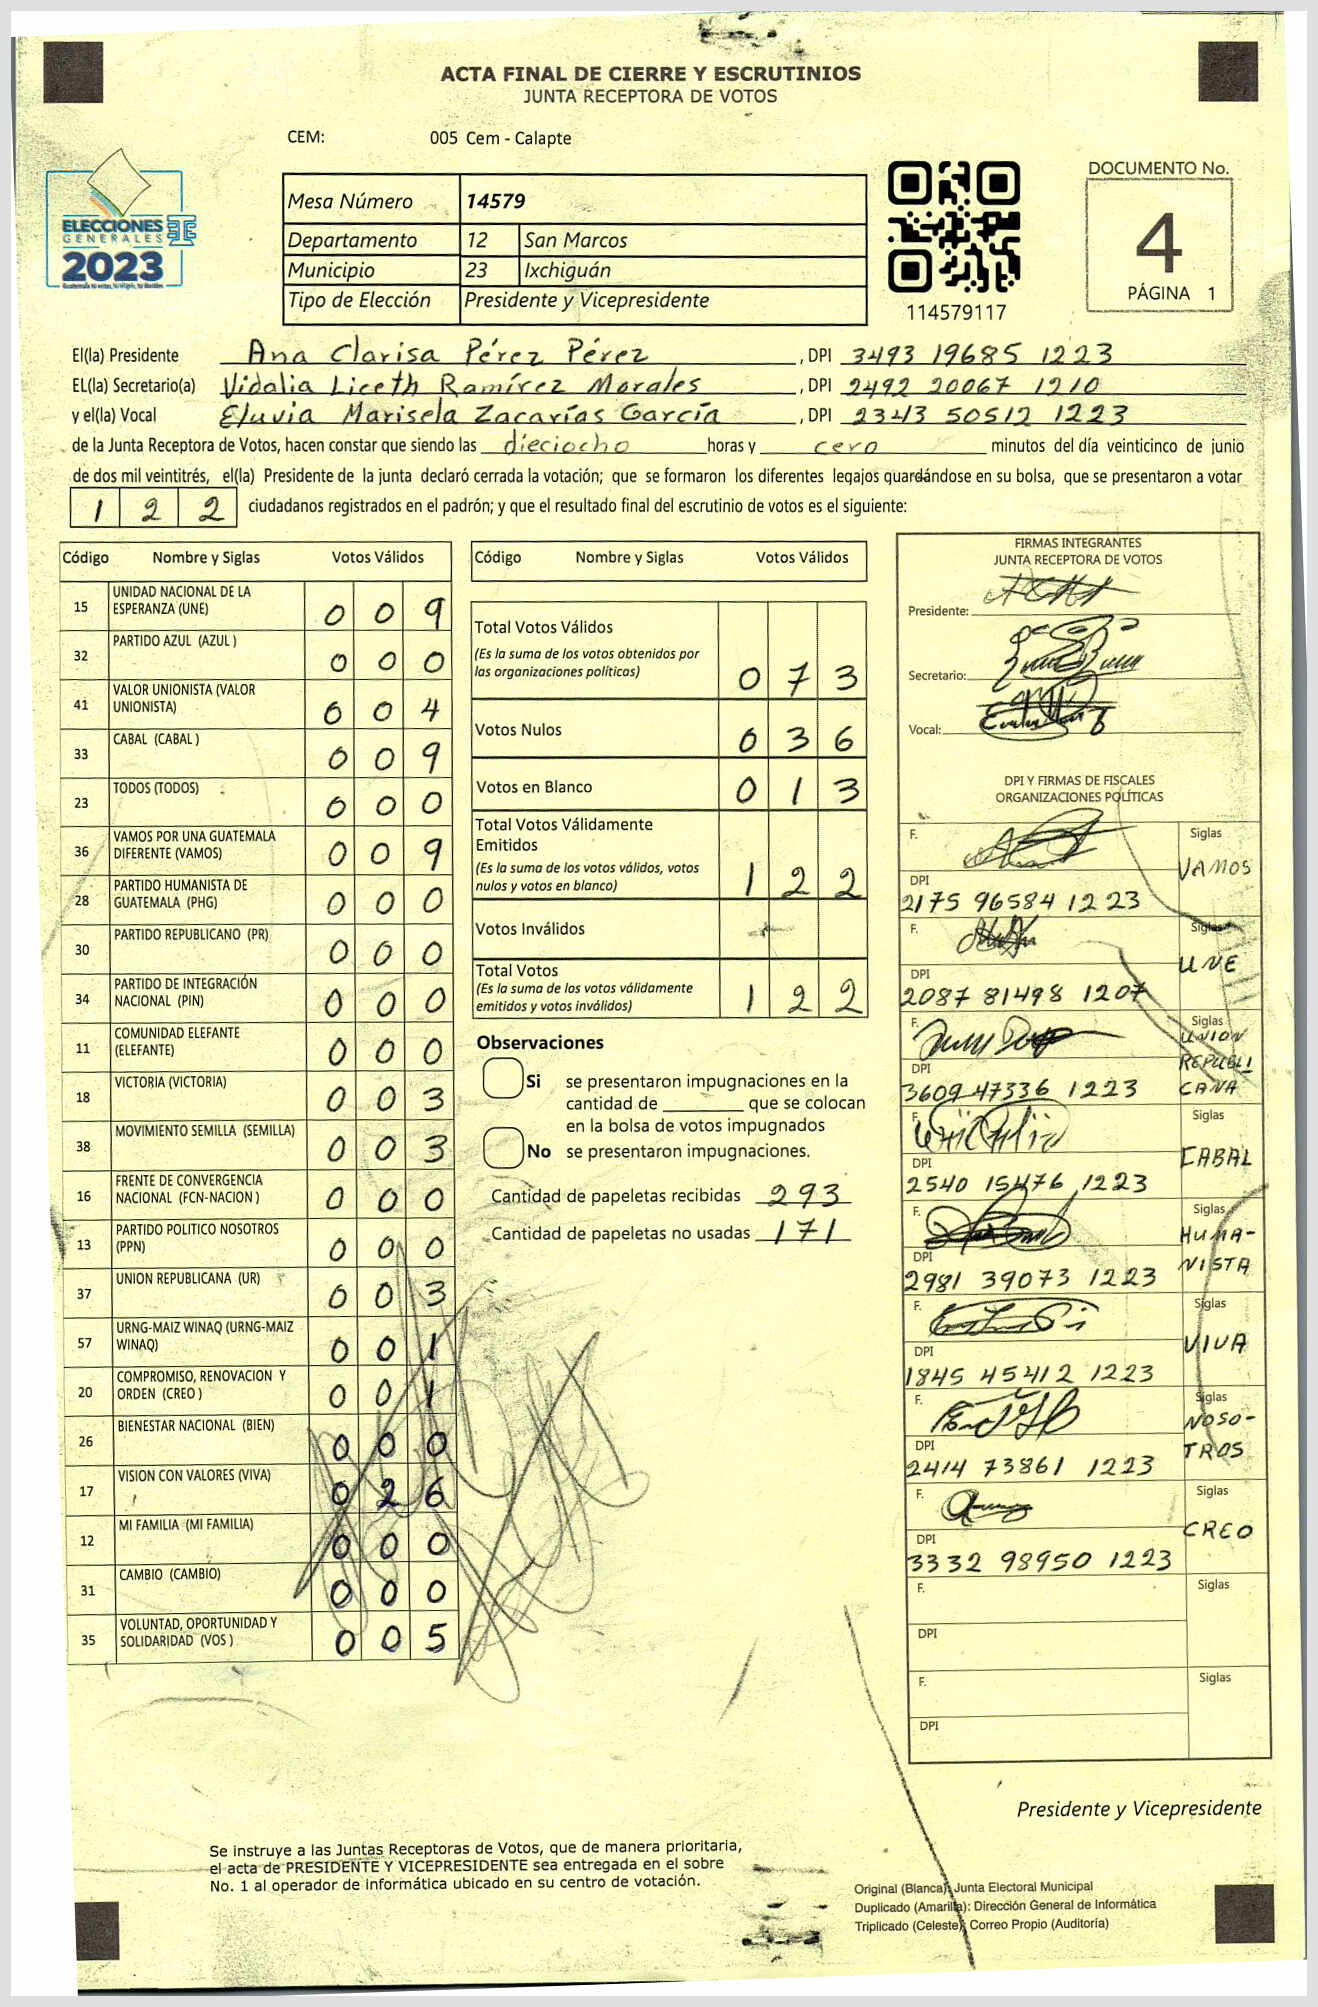 ACTA FINAL DE CIERRE Y ESCRUTINIOS
JUNTA RECEPTORA DE VOTOS
CEM: 005 Cem - Calapte
ELECCIONES
GENERALES
2023
Mesa Número 14579
Departamento 12 San Marcos
Municipio 23 Ixchiguán
Tipo de Elección Presidente y Vicepresidente
114579117
DOCUMENTO No.
4
PÁGINA 1
El(la) Presidente Ana Clarisa Pérez Pérez , DPI 3493 19685 1223
EL(la) Secretario(a) Vidalia Liceth Ramírez Morales , DPI 2492 20067 1210
y el(la) Vocal Eluvia Marisela Zacarías García , DPI 2343 50512 1223
de la Junta Receptora de Votos, hacen constar que siendo las dieciocho horas y cero minutos del día veinticinco de junio
de dos mil veintitrés, el(la) Presidente de la junta declaró cerrada la votación; que se formaron los diferentes legajos guardándose en su bolsa, que se presentaron a votar
1 2 2 ciudadanos registrados en el padrón; y que el resultado final del escrutinio de votos es el siguiente:
Código Nombre y Siglas Votos Válidos
15 UNIDAD NACIONAL DE LA
ESPERANZA (UNE) 0 0 9
32 PARTIDO AZUL (AZUL ) 0 0 0
41 VALOR UNIONISTA (VALOR
UNIONISTA) 0 0 4
33 CABAL (CABAL ) 0 0 9
23 TODOS (TODOS) 0 0 0
36 VAMOS POR UNA GUATEMALA
DIFERENTE (VAMOS) 0 0 9
28 PARTIDO HUMANISTA DE
GUATEMALA (PHG) 0 0 0
30 PARTIDO REPUBLICANO (PR) 0 0 0
34 PARTIDO DE INTEGRACIÓN
NACIONAL (PIN) 0 0 0
11 COMUNIDAD ELEFANTE
(ELEFANTE) 0 0 0
18 VICTORIA (VICTORIA) 0 0 3
38 MOVIMIENTO SEMILLA (SEMILLA) 0 0 3
16 FRENTE DE CONVERGENCIA
NACIONAL (FCN-NACION ) 0 0 0
13 PARTIDO POLITICO NOSOTROS
(PPN) 0 0 0
37 UNION REPUBLICANA (UR) 0 0 3
57 URNG-MAIZ WINAQ (URNG-MAIZ
WINAQ) 0 0 1
20 COMPROMISO, RENOVACION Y
ORDEN (CREO ) 0 0 1
26 BIENESTAR NACIONAL (BIEN) 0 0 0
17 VISION CON VALORES (VIVA) 0 2 6
12 MI FAMILIA (MI FAMILIA) 0 0 0
31 CAMBIO (CAMBIO) 0 0 0
35 VOLUNTAD, OPORTUNIDAD Y
SOLIDARIDAD (VOS ) 0 0 5
Código Nombre y Siglas Votos Válidos
Total Votos Válidos
(Es la suma de los votos obtenidos por
las organizaciones políticas) 0 7 3
Votos Nulos 0 3 6
Votos en Blanco 0 1 3
Total Votos Válidamente
Emitidos
(Es la suma de los votos válidos, votos
nulos y votos en blanco) 1 2 2
Votos Inválidos
Total Votos
(Es la suma de los votos válidamente
emitidos y votos inválidos) 1 2 2
Observaciones
Si se presentaron impugnaciones en la
cantidad de ________ que se colocan
en la bolsa de votos impugnados
No se presentaron impugnaciones.
Cantidad de papeletas recibidas 293
Cantidad de papeletas no usadas 171
FIRMAS INTEGRANTES
JUNTA RECEPTORA DE VOTOS
Presidente:
Secretario:
Vocal:
DPI Y FIRMAS DE FISCALES
ORGANIZACIONES POLÍTICAS
F. Siglas
VAMOS
DPI
2175 96584 1223
F. Siglas
UNE
DPI
2087 81498 1207
F. Siglas
UNION
REPUBLI
CANA
DPI
3609 47336 1223
F. Siglas
CABAL
DPI
2540 15476 1223
F. Siglas
HUMA-
NISTA
DPI
2981 39073 1223
F. Siglas
VIVA
DPI
1845 45412 1223
F. Siglas
NOSO-
TROS
DPI
2414 73861 1223
F. Siglas
CREO
DPI
3332 98950 1223
F. Siglas
DPI
F. Siglas
DPI
Presidente y Vicepresidente
Se instruye a las Juntas Receptoras de Votos, que de manera prioritaria,
el acta de PRESIDENTE Y VICEPRESIDENTE sea entregada en el sobre
No. 1 al operador de informática ubicado en su centro de votación.
Original (Blanca): Junta Electoral Municipal
Duplicado (Amarilla): Dirección General de Informática
Triplicado (Celeste): Correo Propio (Auditoría)